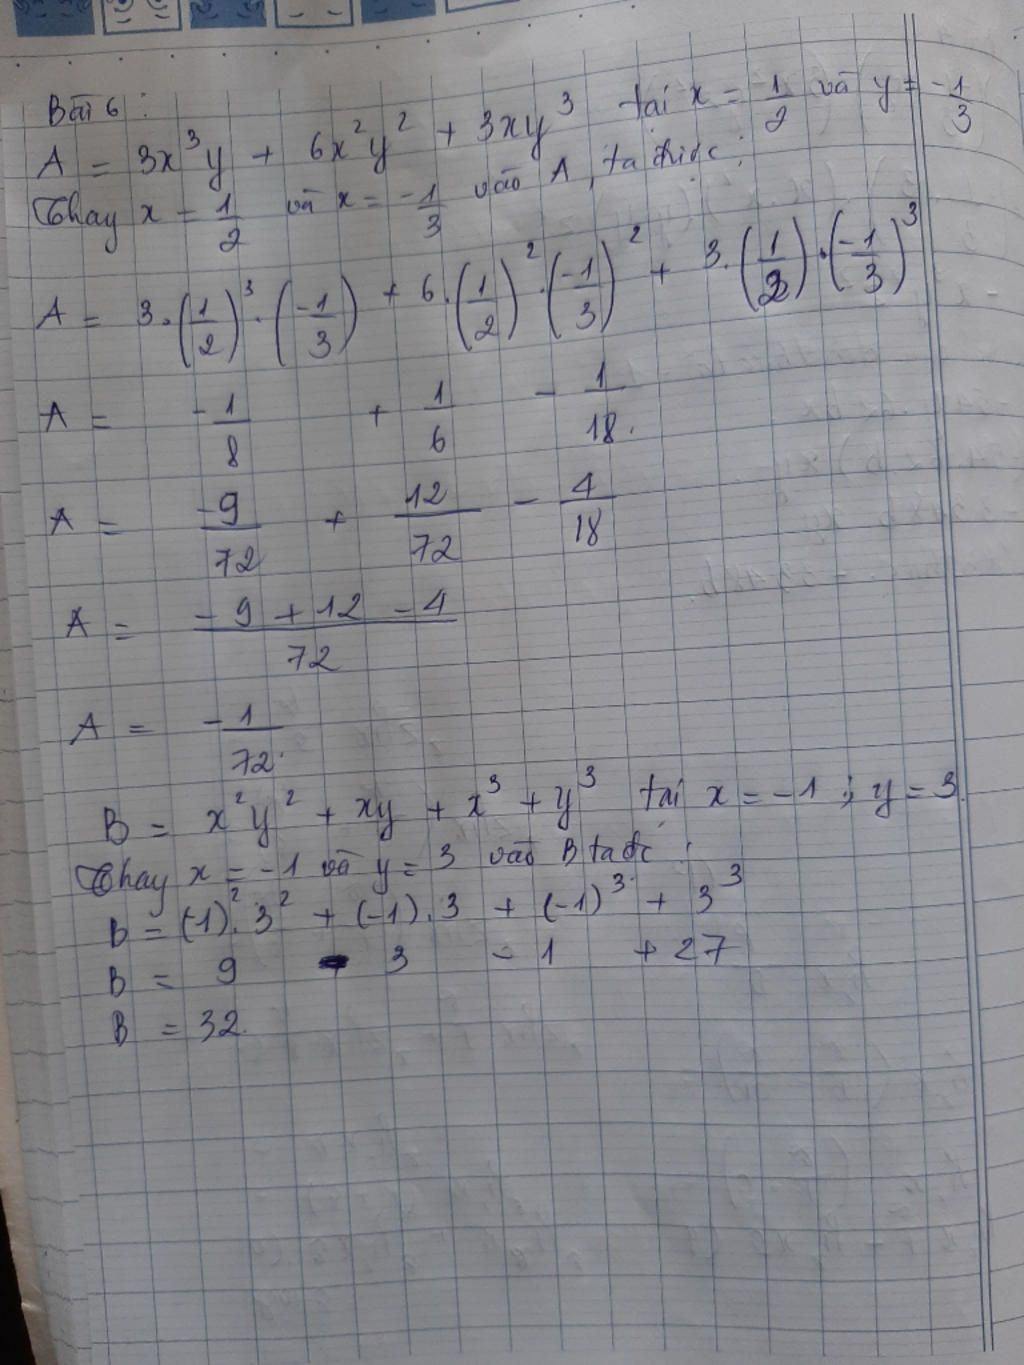 Bài 6:
A = 3x³y + 6x²y² + 3xy³ tại x = 1/2 và y = -1/3
Thay x = 1/2 và x = -1/3 vào A, ta được:
A = 3.(1/2)³.(-1/3) + 6.(1/2)².(-1/3)² + 3.(1/2).(-1/3)³
A = -1/8 + 1/6 - 1/18.
A = -9/72 + 12/72 - 4/18
A = (-9 + 12 - 4)/72
A = -1/72.
B = x²y² + xy + x³ + y³ tại x = -1; y = 3.
Thay x = -1 và y = 3 vào B ta đc:
B = (-1)².3² + (-1).3 + (-1)³ + 3³
B = 9 - 3 - 1 + 27
B = 32.